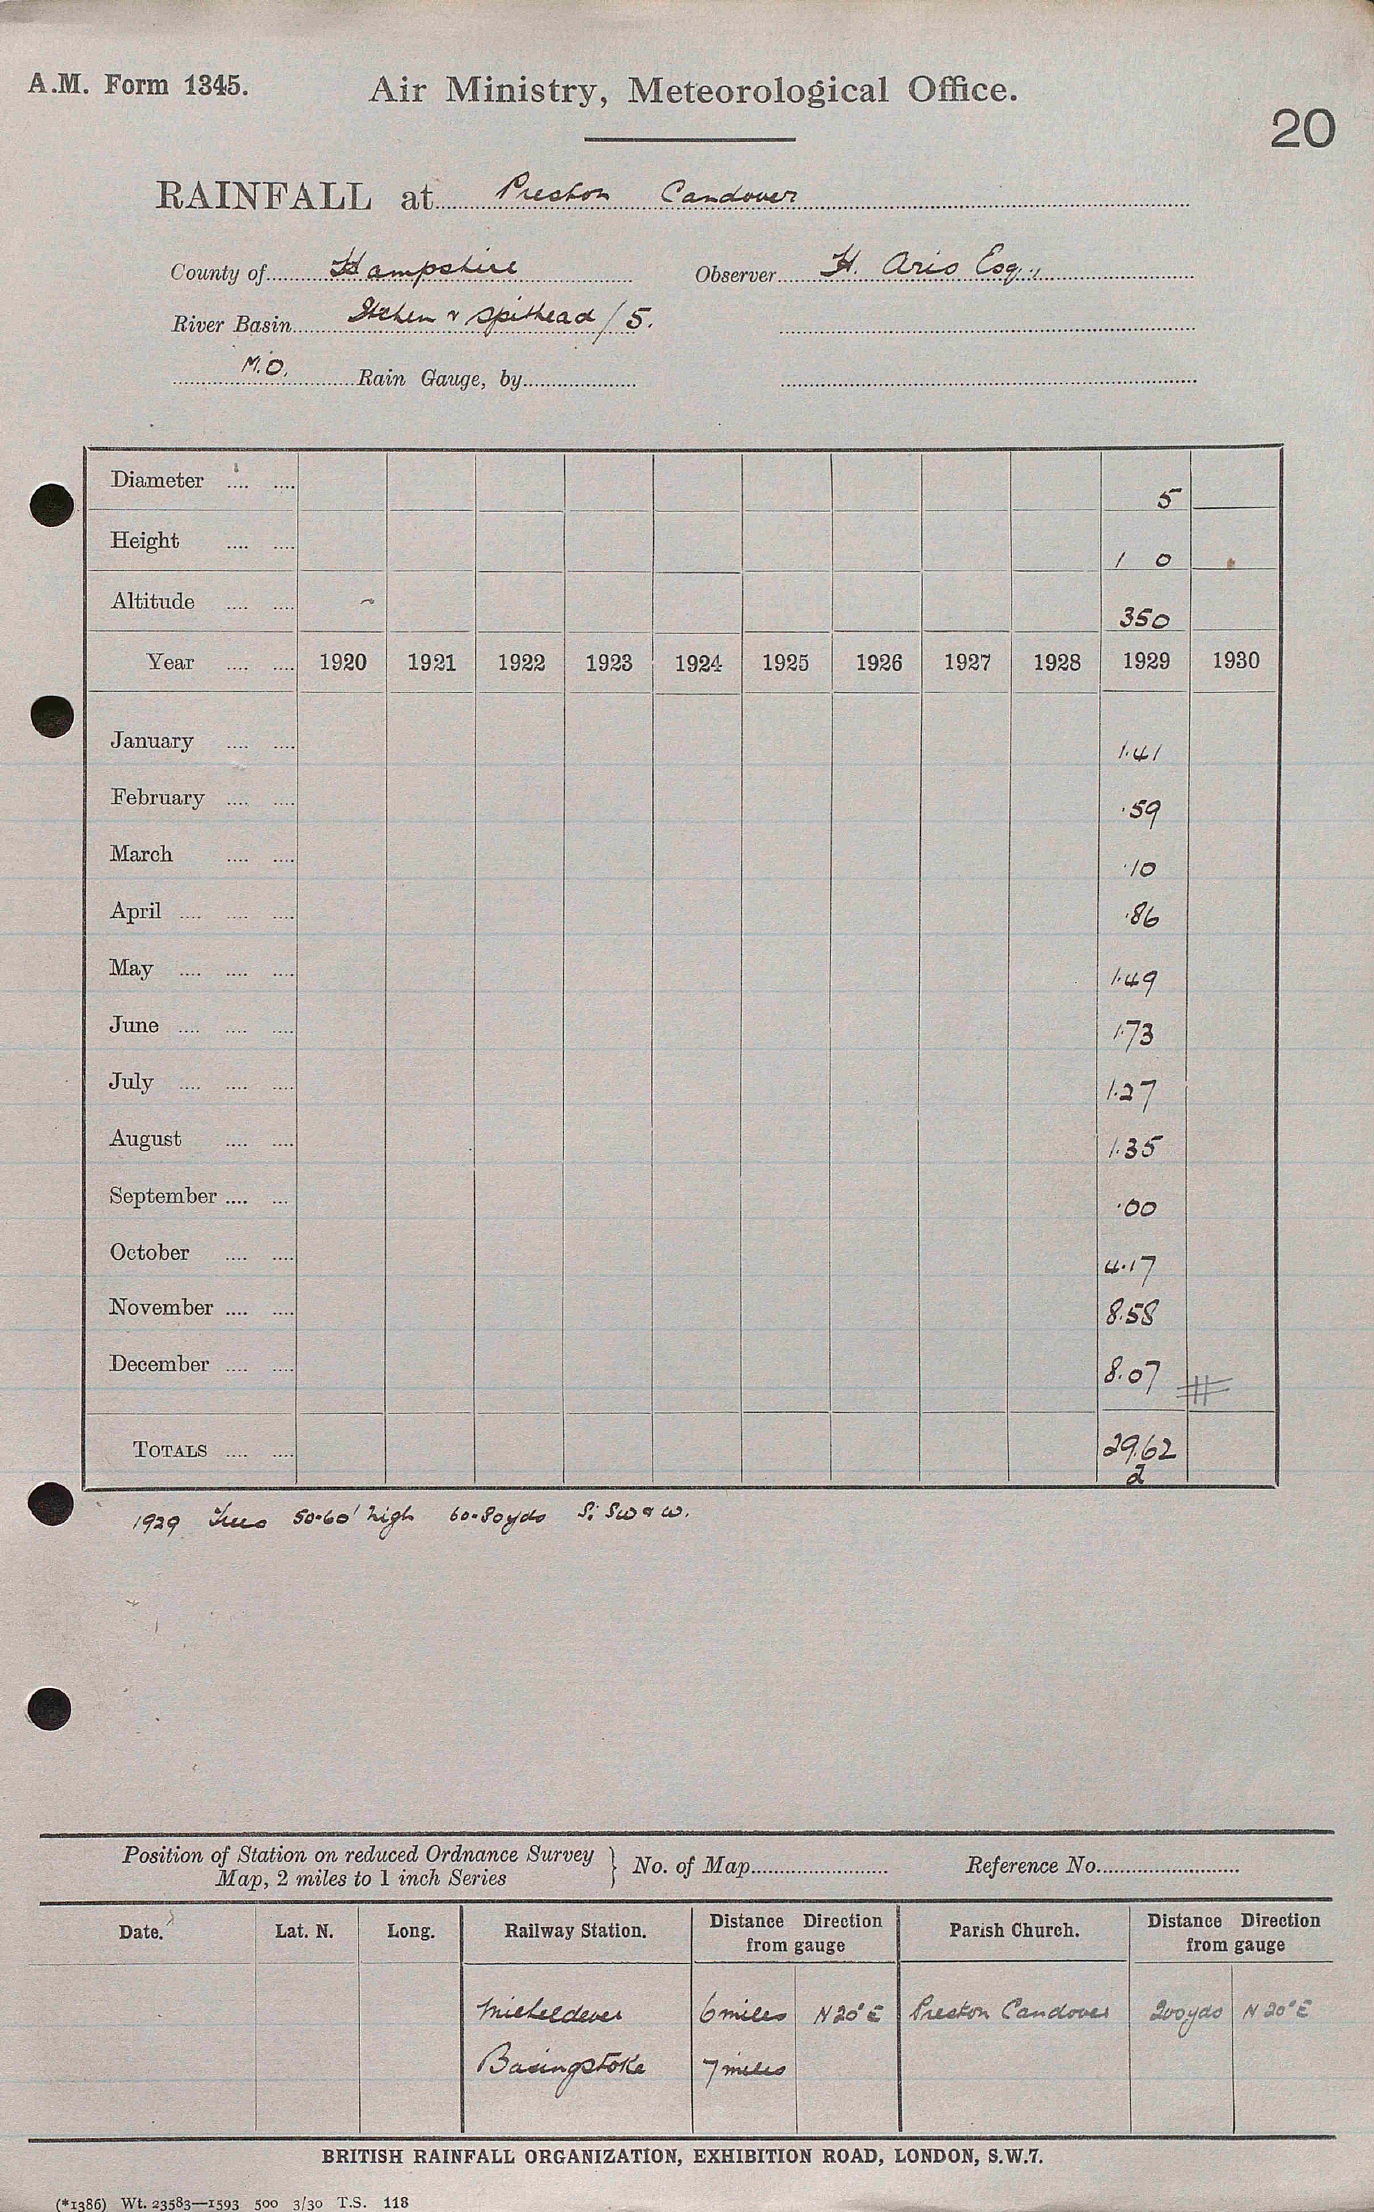 A.M. Form 1345.
Air Ministry, Meteorological Office.
20
RAINFALL at Preston Candover
County of Hampshire Observer H. Aris Esq.,
River Basin Itchen & Spithead / 5.
M.O. Rain Gauge, by
Diameter .... .... 5
Height .... .... 1 0
Altitude .... .... 350
Year .... .... 1920 1921 1922 1923 1924 1925 1926 1927 1928 1929 1930
January .... .... 1.41
February .... .... .59
March .... .... .10
April .... .... .... .86
May .... .... .... 1.49
June .... .... .... 1.73
July .... .... .... 1.27
August .... .... 1.35
September .... .... .00
October .... .... 4.17
November .... .... 8.58
December .... .... 8.07
TOTALS .... .... 29.62
2
1929 Trees 50-60' high 60-80yds S; SW & W.
Position of Station on reduced Ordnance Survey
Map, 2 miles to 1 inch Series } No. of Map Reference No.
Date. Lat. N. Long. Railway Station. Distance Direction from gauge Parish Church. Distance Direction from gauge
Micheldever 6 miles N 20° E Preston Candover 200yds N 20° E
Basingstoke 7 miles
BRITISH RAINFALL ORGANIZATION, EXHIBITION ROAD, LONDON, S.W.7.
(*1386) Wt. 23583—1593 500 3/30 T.S. 118